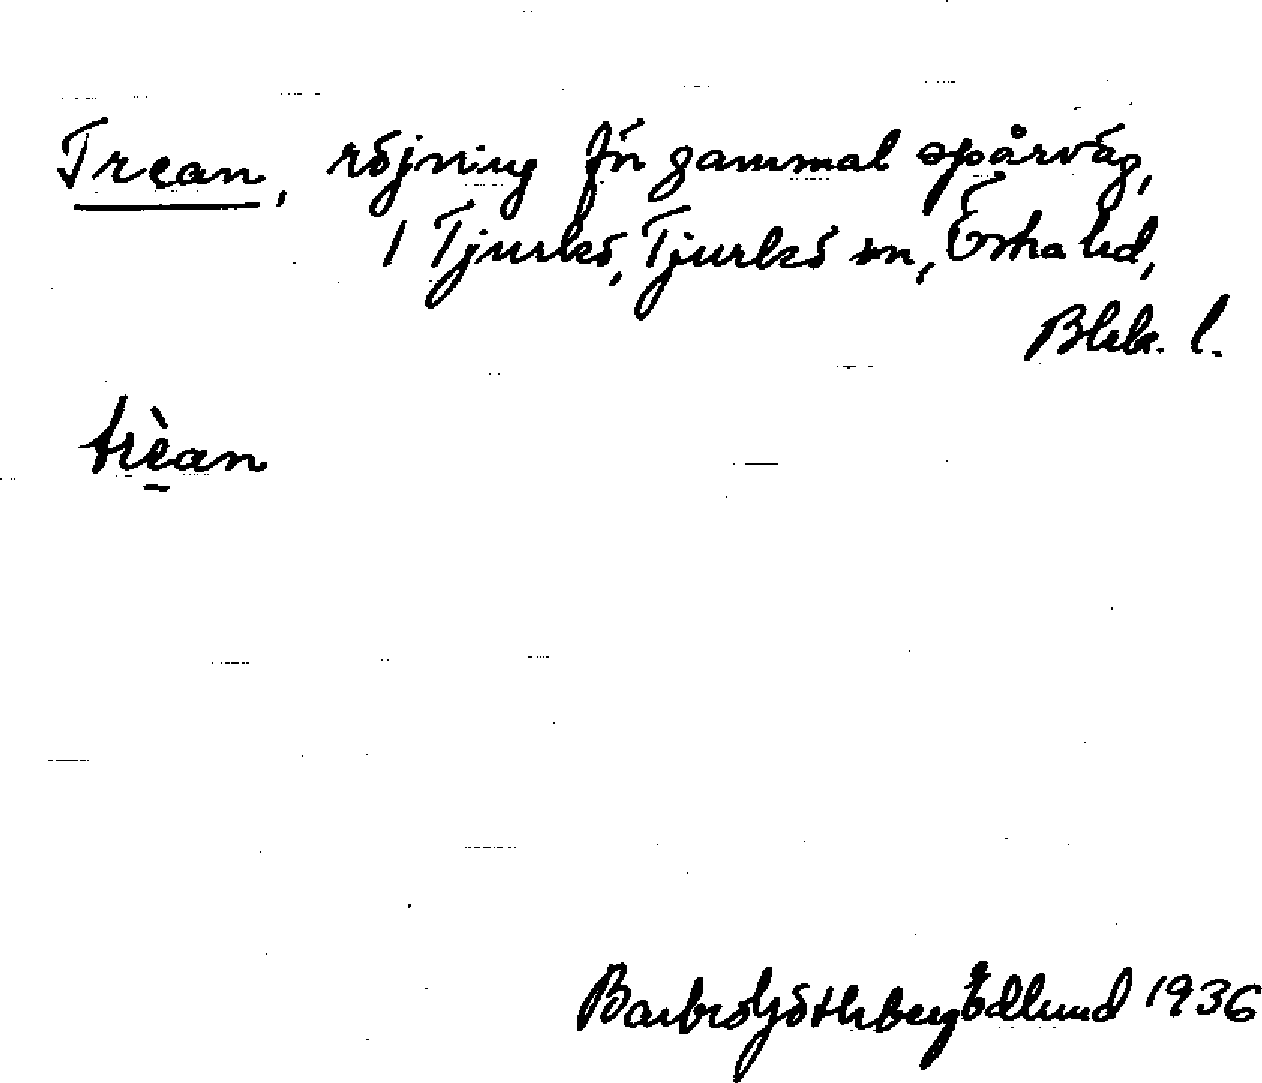 Trean, röjning för gammal spårväg,
1 Tjurkö, Tjurkö sn, Östra hd,
Blek. l.
trèan
Barbro Göthberg Edlund 1936